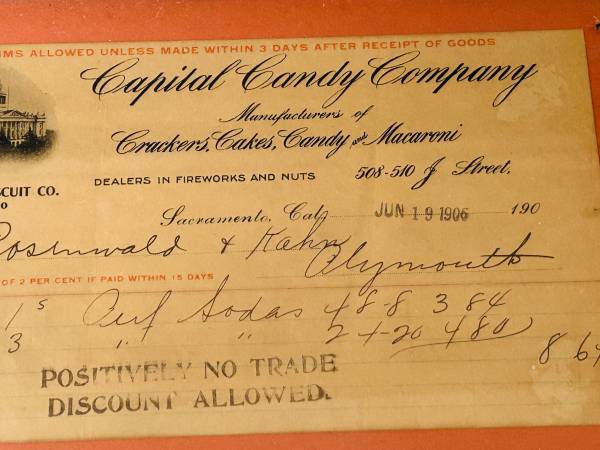 IMS ALLOWED UNLESS MADE WITHIN 3 DAYS AFTER RECEIPT OF GOODS
Capital Candy Company
Manufacturers of
Crackers, Cakes, Candy and Macaroni
SCUIT CO.
DEALERS IN FIREWORKS AND NUTS 508-510 J Street,
O
Sacramento, Cal., JUN 19 1906 190
Rosenwald & Kahn
Plymouth
OF 2 PER CENT IF PAID WITHIN 15 DAYS
1s Sodas 48-8 3 84
3 " " 2-1-20 4 80
8 64
POSITIVELY NO TRADE
DISCOUNT ALLOWED.